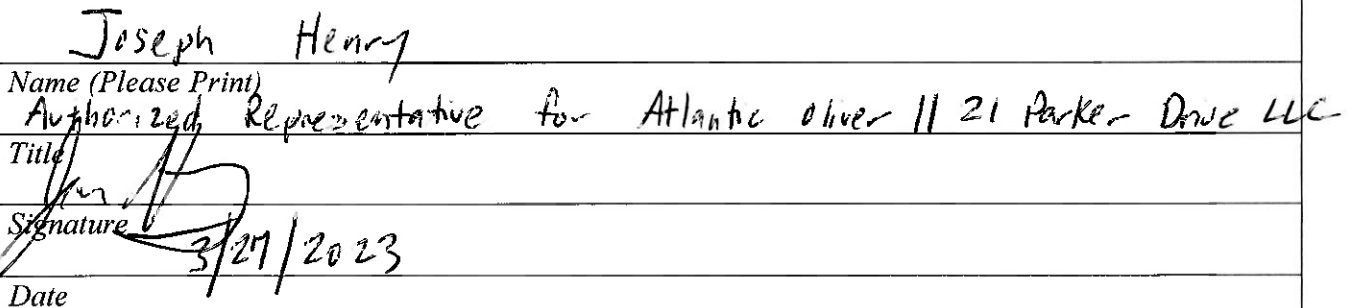 Joseph Henry
Name (Please Print)
Authorized Representative for Atlantic Oliver II 21 Parker Drive LLC
Title
Signature
3/27/2023
Date